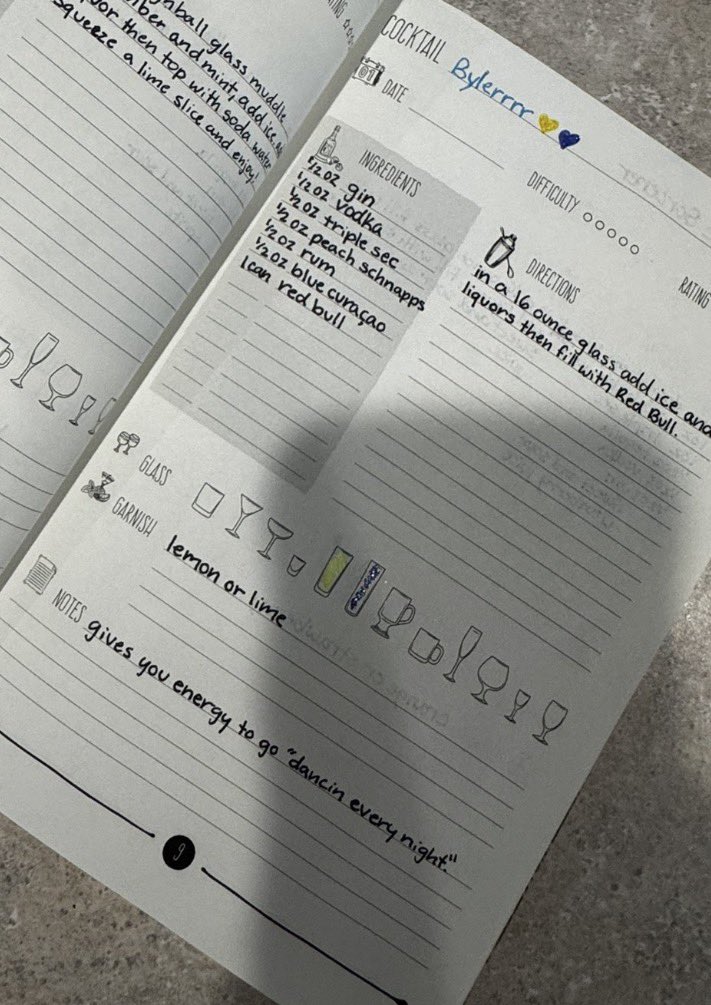 ball glass muddle
ber and mint, add ice
or then top with soda water
squeeze a lime slice and enjoy!
COCKTAIL Bylerrrr
01
DATE
INGREDIENTS
1/2 oz gin
1/2 oz vodka
1/2 oz triple sec
1/2 oz peach schnapps
1/2 oz rum
1/2 oz blue curaçao
1 can red bull
DIFFICULTY
RATING
DIRECTIONS
in a 16 ounce glass add ice and
liquors then fill with Red Bull.
GLASS
GARNISH
lemon or lime
NOTES
gives you energy to go "dancin every night."
9